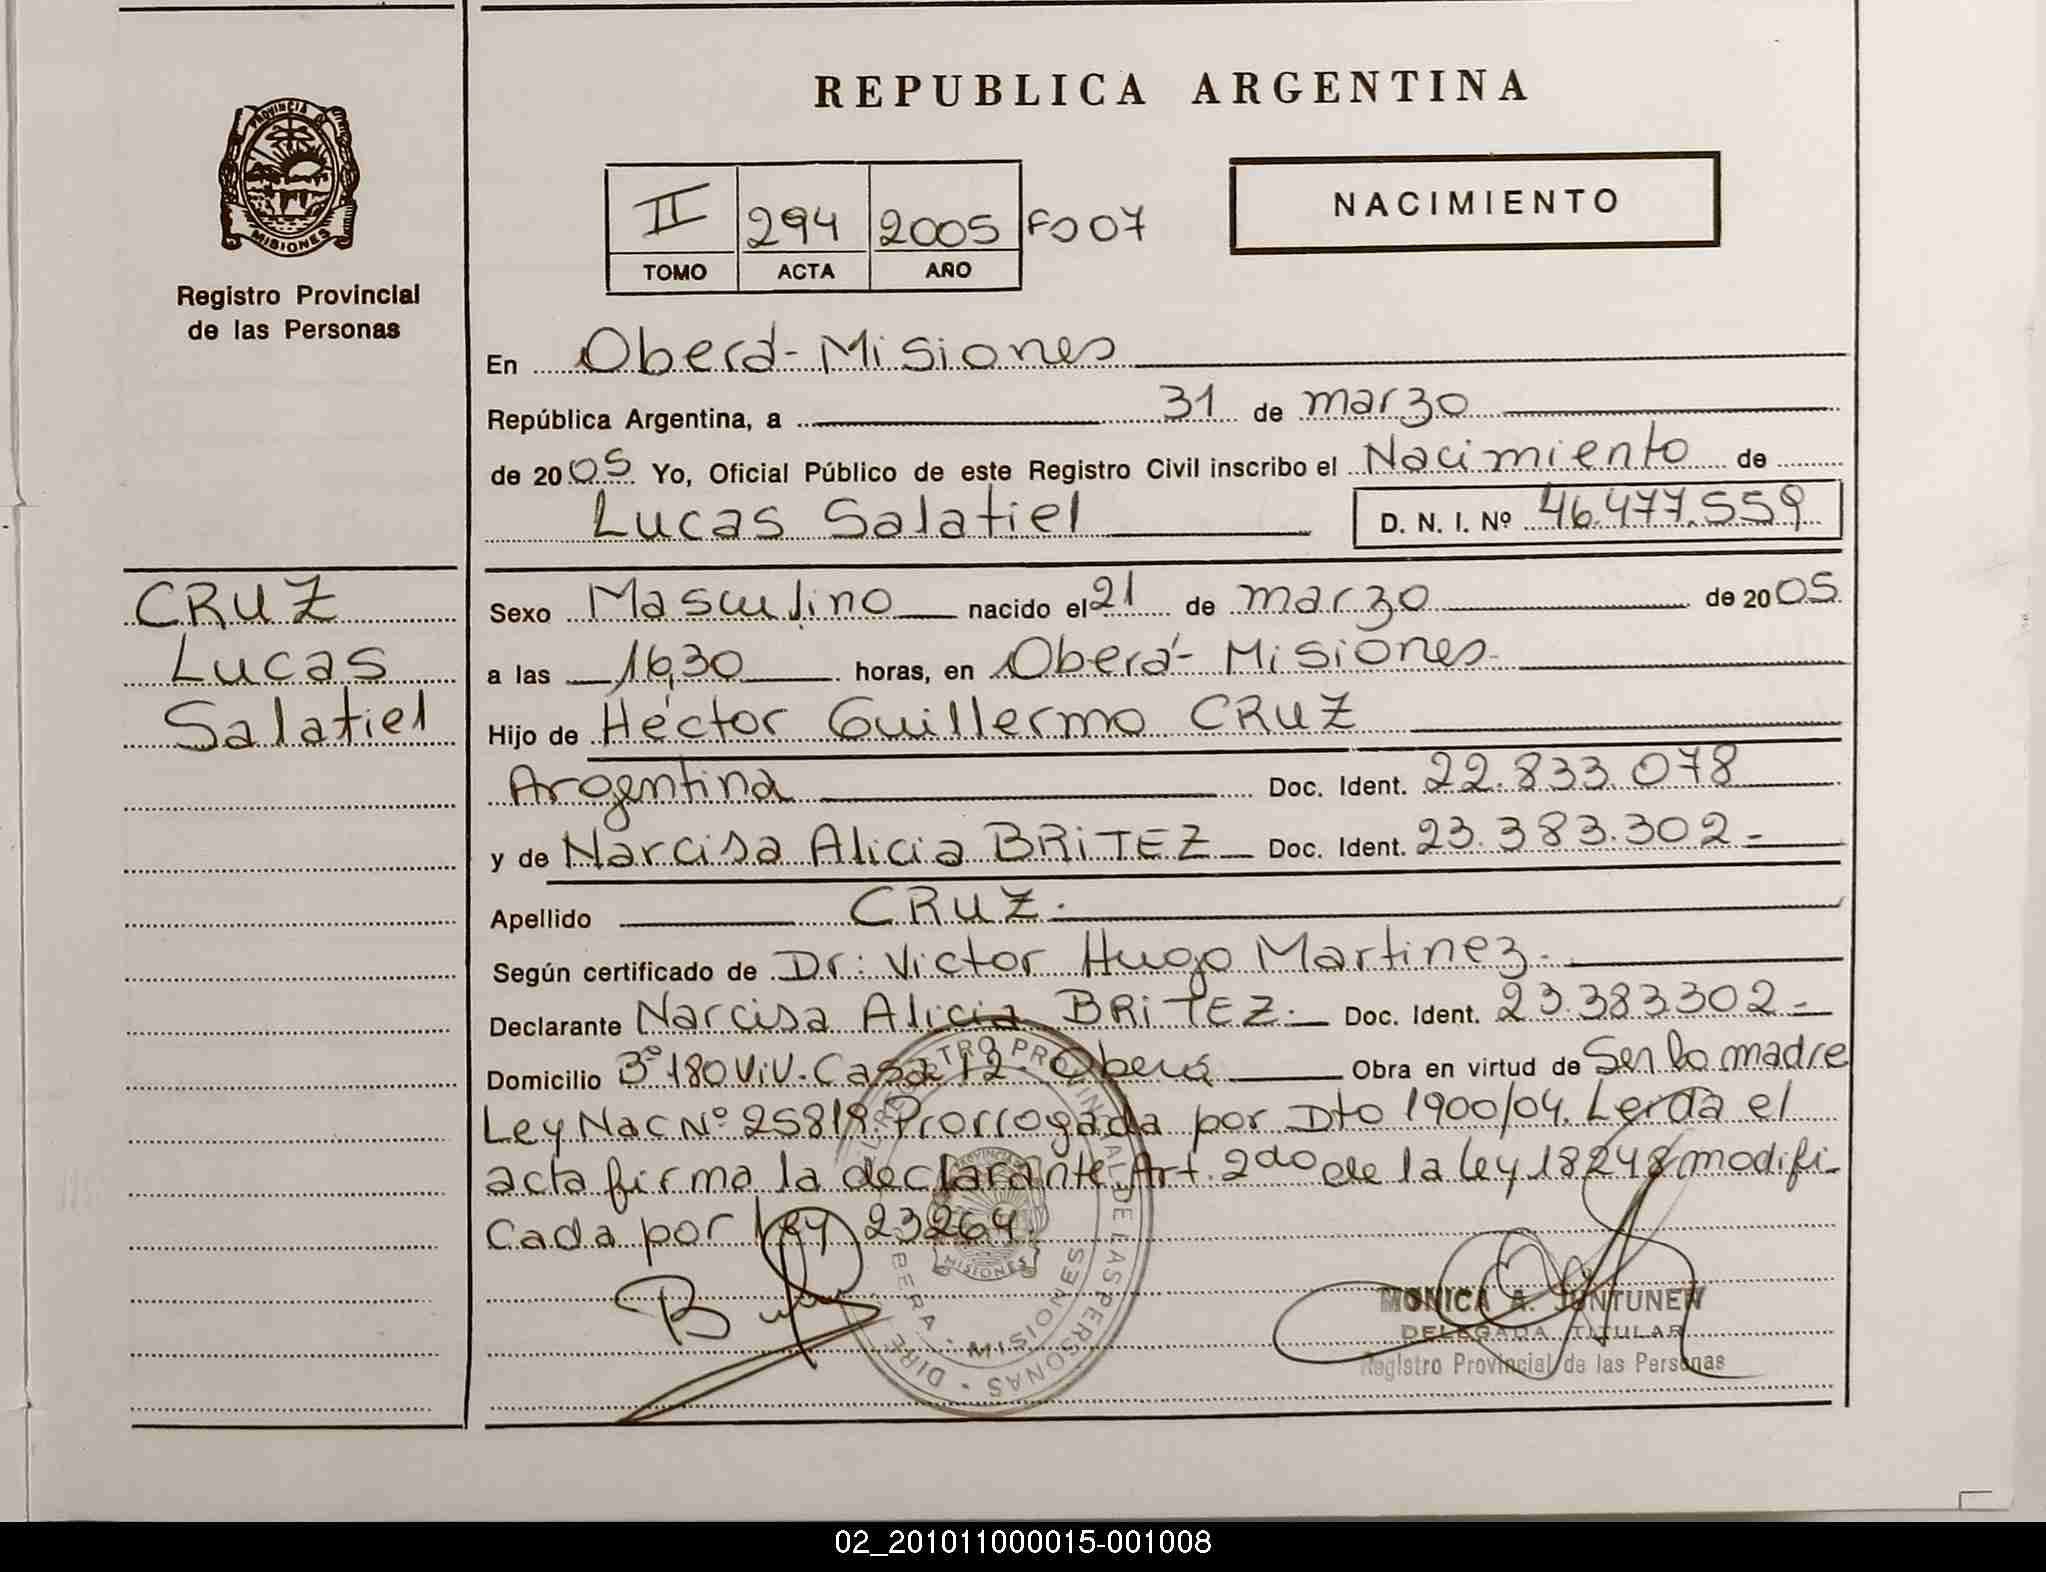 REPUBLICA ARGENTINA
PROVINCIA DE
MISIONES
Registro Provincial
de las Personas
II 294 2005 Fo 07
TOMO ACTA AÑO
NACIMIENTO
En Oberá - Misiones
República Argentina, a 31 de marzo
de 2005 Yo, Oficial Público de este Registro Civil inscribo el Nacimiento de
Lucas Salatiel D. N. I. Nº 46.477.559
CRUZ
Lucas
Salatiel
Sexo Masculino nacido el 21 de marzo de 2005
a las 16,30 horas, en Oberá - Misiones.
Hijo de Héctor Guillermo CRUZ
Argentina Doc. Ident. 22.833.078
y de Narcisa Alicia BRiTEZ Doc. Ident. 23.383.302 -
Apellido CRUZ.
Según certificado de Dr: Victor Hugo Martinez.
Declarante Narcisa Alicia BRiTEZ. Doc. Ident. 23.383.302 -
Domicilio 3º 180 ViV. Casa 12. Oberá Obra en virtud de Ser la madre
Ley Nac Nº 25819 Prorrogada por Dto 1900/04. Leída el
acta firma la declarante. Art. 2do de la Ley 18248 modifi-
cada por Ley 23264.
REGISTRO PROVINCIAL DE LAS PERSONAS
MISIONES
MONICA A. JUNTUNEN
DELEGADA TITULAR
Registro Provincial de las Personas
02_201011000015-001008